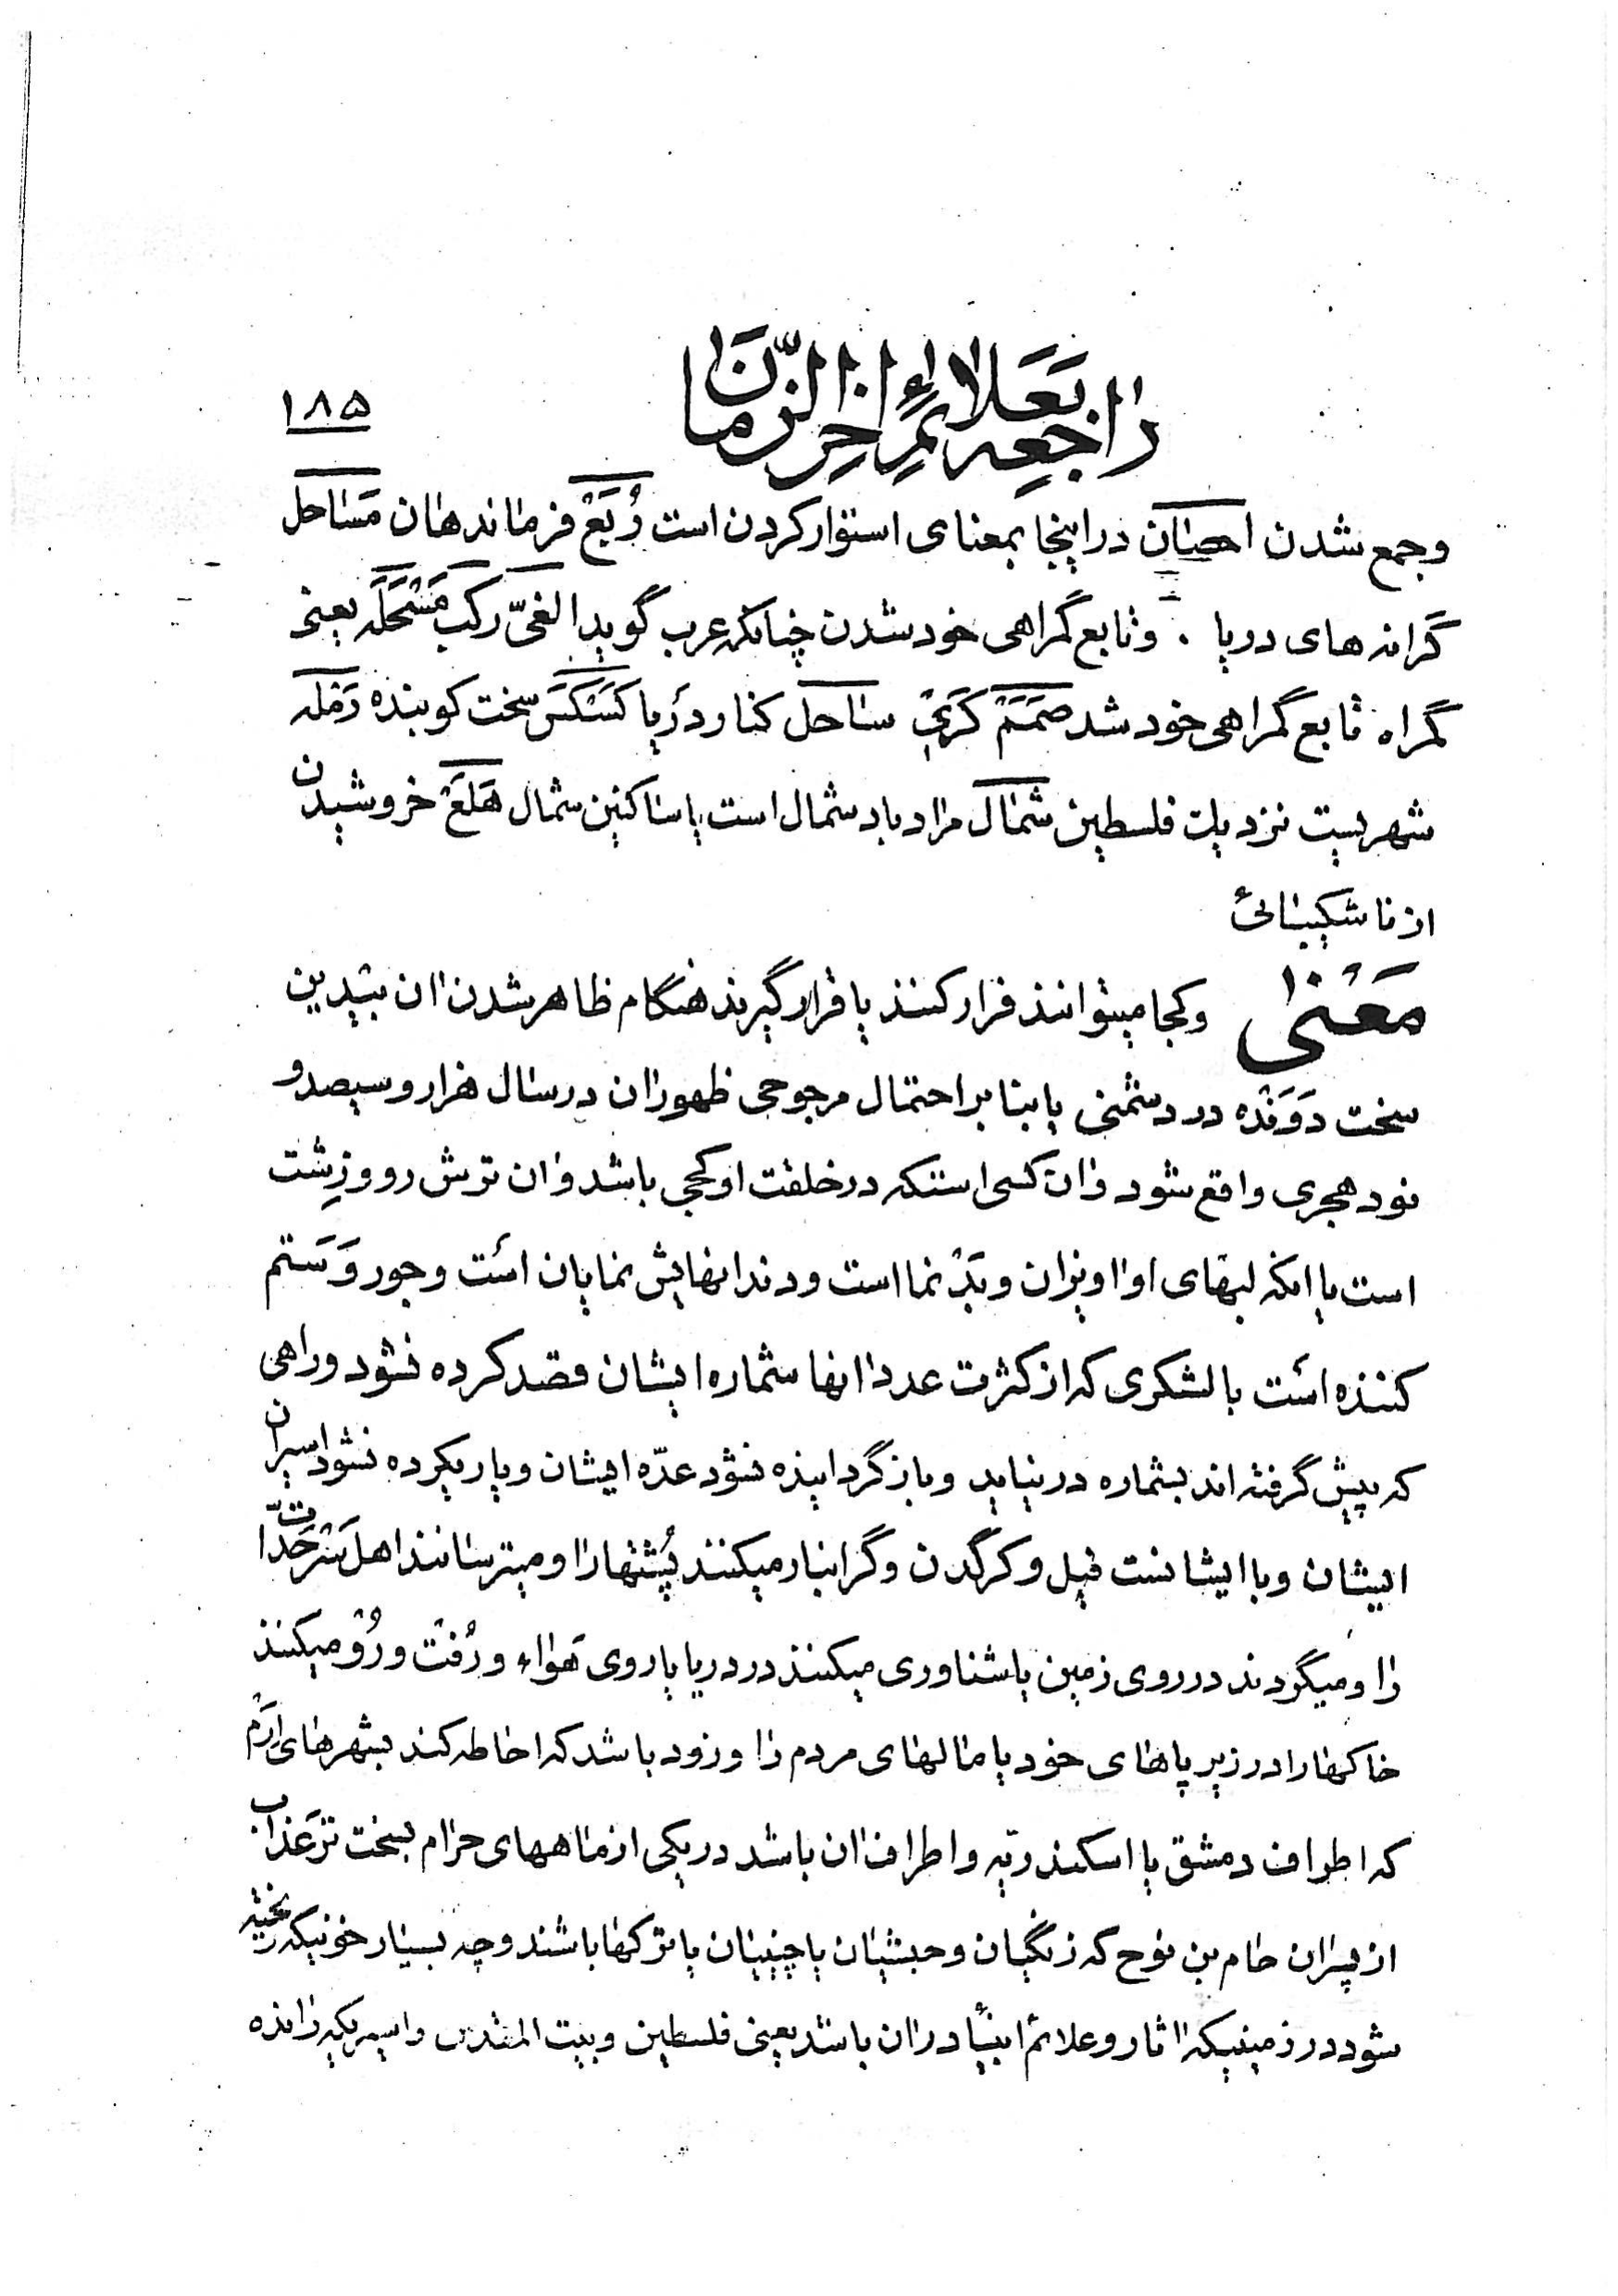 راجعه بعلائم اخر الزمان
۱۸۵
وجمع شدن احصان در اینجا بمعنای استوار کردن است رُبَعْ فرماندهان مَساحل
گرانه های دریا . وتابع گمراهی خود شدن چنانکه عرب گوید الغیّ رکب مَسْحَلَه یعنی
گمراه تابع گمراهی خود شد صَمَمْ کَرِی ساحل کنار دریا کَسْکَسَ سخت کوبنده رَمَله
شهریست نزدیک فلسطین شمال مراد باد شمال است یا ساکنین شمال هَلَعْ خروشیدن
از ناشکیبائی
مَعْنی وکجا میتوانند فرار کنند یا قرار گیرند هنگام ظاهر شدن ان
سخت دَوَنْده در دشمنی یا بنا بر احتمال مرجوحی ظهور ان در سال هزار و سیصد و
نود هجری واقع شود وان کسی استکه در خلقت او کجی باشد و ان ترش رو و زشت
است یا انکه لبهای او اویزان و بَدْ نما است و دندانهایش نمایان است وجور وَ سَتم
کننده است با لشکری که از کثرت عدد انها شماره ایشان قصد کرده نشود و راهی
که پیش گرفته اند بشماره در نیاید وباز گردانیده نشود عدّه ایشان و یاری کرده نشود اسیران
ایشان وبا ایشانست فیل و کرگدن و گرانبار میکنند پُشتهارا و میترسانند اهل سَرْحَدّات
را ومیگردند در روی زمین یا شناوری میکنند در دریا یا روی هَواء و رُفْت و رُوْ میکنند
خاکهارا در زیر پاهای خود یا مالهای مردم را و زود باشد که احاطه کند بشهرهای اِرَم
که اطراف دمشق یا اسکندریّه و اطراف ان باشد در یکی از ماههای حرام بسخت تر عَذاب
از پسران حام بن نوح که زنگیان و حبشیان یا چینیان یا ترکها باشند و چه بسیار خونیکه ریخته
شود در زمینیکه اثار و علائم انبیأ دران باشد یعنی فلسطین و بیت المقدس واسیریکه رانده